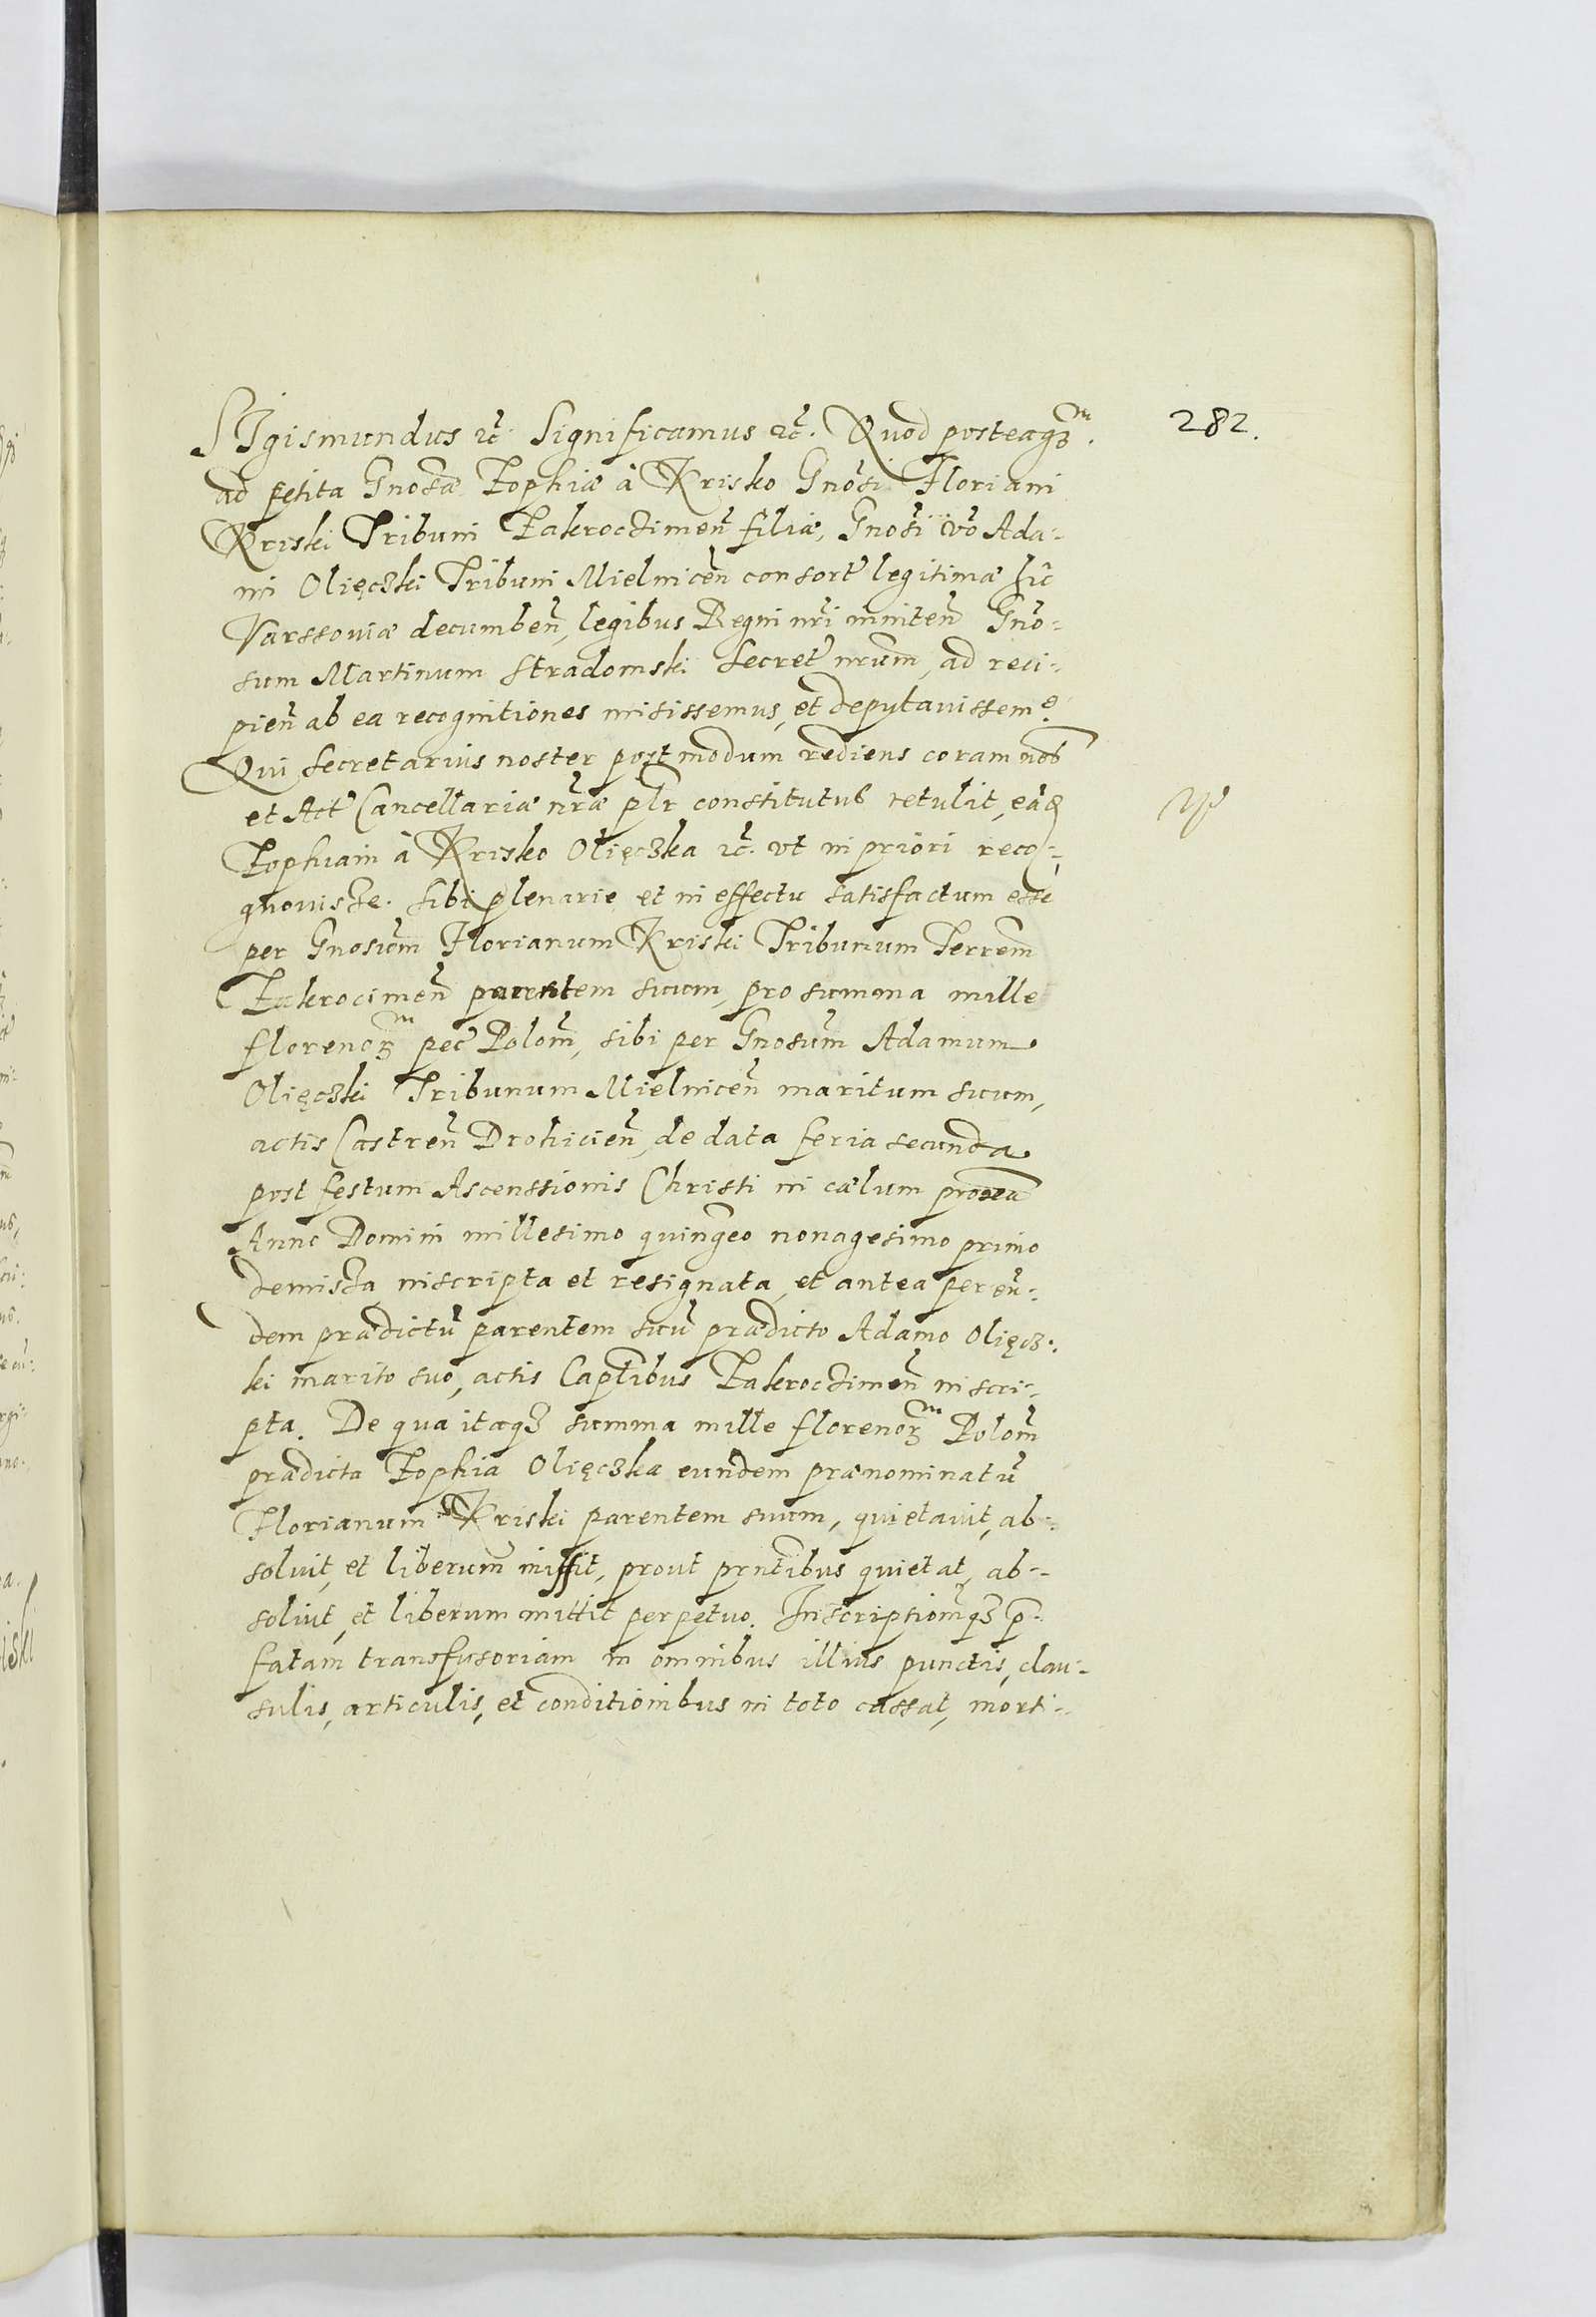 SIgismundus &c̃. Significamus &c̃. Quod posteaqȝᵐ. 282.
ad petita Gnosæ Zophiæ à Krisko Gnosi Floriani
Kriski Tribuni Zakroczimeñ filiæ, Gnosi vo Ada-
mi Olięczki Tribuni Mielniceñ consort legitimæ hic
Varssoviæ decumbeñ, legibus Regni nri initeñ Gno-
sum Martinum Stradomski Secret nrum, ad reci-
pieñ ab ea recognitiones misissemus, et deputavissemꝰ
Qui Secretarius noster postmodum rediens coram nob
et Act Cancellariæ nræ plr constitutus retulit, eadē
Zophiam à Krisko Olięczka &c̃. ut in priori reco-
gnovisse. Sibi plenarie et in effectu satisfactum esse
per Gnosum Florianum Kriski Tribunum Terrem
Zakrocimeñ parentem suum, pro summa mille
florenorᵐ pec Polom, sibi per Gnosum Adamum
Olięczki Tribunum Mielniceñ maritum suum,
actis Castreñ Drohicieñ, de data feria secunda
post festum Ascenssionis Christi in cælum proxa
Anno Domini millesimo quingeo nonagesimo primo
demissa inscripta et resignata, et antea per eũ-
dem prædictũ parentem suũ prædicto Adamo Olięcz-
ki marito suo, actis Captlibus Zakroczimeñ inscri-
pta. De qua itaqȝ summa mille florenorᵐ Polom
prædicta Zophia Olięczka eundem prænominatũ
Florianum Kriski parentem suum, quietavit, ab-
solvit, et liberum missit, prout prntibus quietat, ab-
solvit, et liberum mittit perpetuo. Inscriptiomqȝ p̄-
fatam transfusoriam in omnibus illius punctis, clau-
sulis, articulis, et conditionibus in toto cassat, morti-